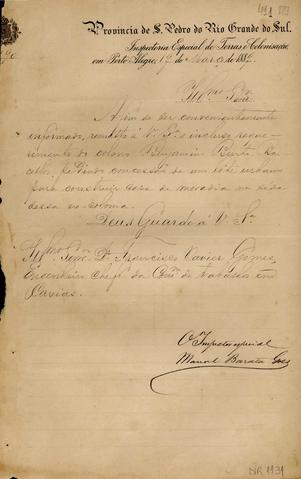 Provincia de S. Pedro do Rio Grande do Sul.
Inspectoria Especial de Terras e Colonisação
em Porto Alegre, 17 de Março de 188
Illmo Snr
Afim de ser convenientemente
informado, remetto á V. Sª o incluso reque-
rimento do colono Benjamin
pedindo concessão de um lote urbano
para construir casa de moradia na séde
dessa ex-colonia.
Deus Guarde á V. Sª
Illmo Senr. Dr. Francisco Xavier Gomes,
Engenheiro Chefe da de em
Caxias.
O Inspector especial
Manoel Barata Goes
NR 1131